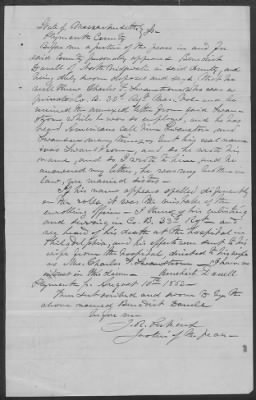 State of Massachusetts } ss
Plymouth County
Before me a justice of the peace in and for
said County personally appeared Benedict
Danell of North Bridgewater in said County and
being duly sworn deposes and said that he
well knew Charles F. Swanstrom who was a
private Co. B. 33d Regt Mass. Vols and he
received the annexed letter from said Swan-
strom while he was so employed, and he has
heard Americans call him Swanston, and
Swanson many times but his real name
was Swanstrom, and so he wrote his
name, and so I wrote to him and he
answered my letter, he being my brother in
law, we married sisters.
If his name appears spelled differently
on the rolls it was the mistake of the
enrolling officer. I knew of his enlisting
and serving in Co. B. 33d Regt and
we heard of his death at the hospital in
Philadelphia, and his effects were sent to his
wife from the hospital, directed to his wife
as Mrs. Charles F. Swanstrom. I have no
interest in this claim. Benedict Danell
Plymouth ss. August 10th 1863
Then subscribed and sworn to by the
above named Benedict Danell
before me
Justice of the peace